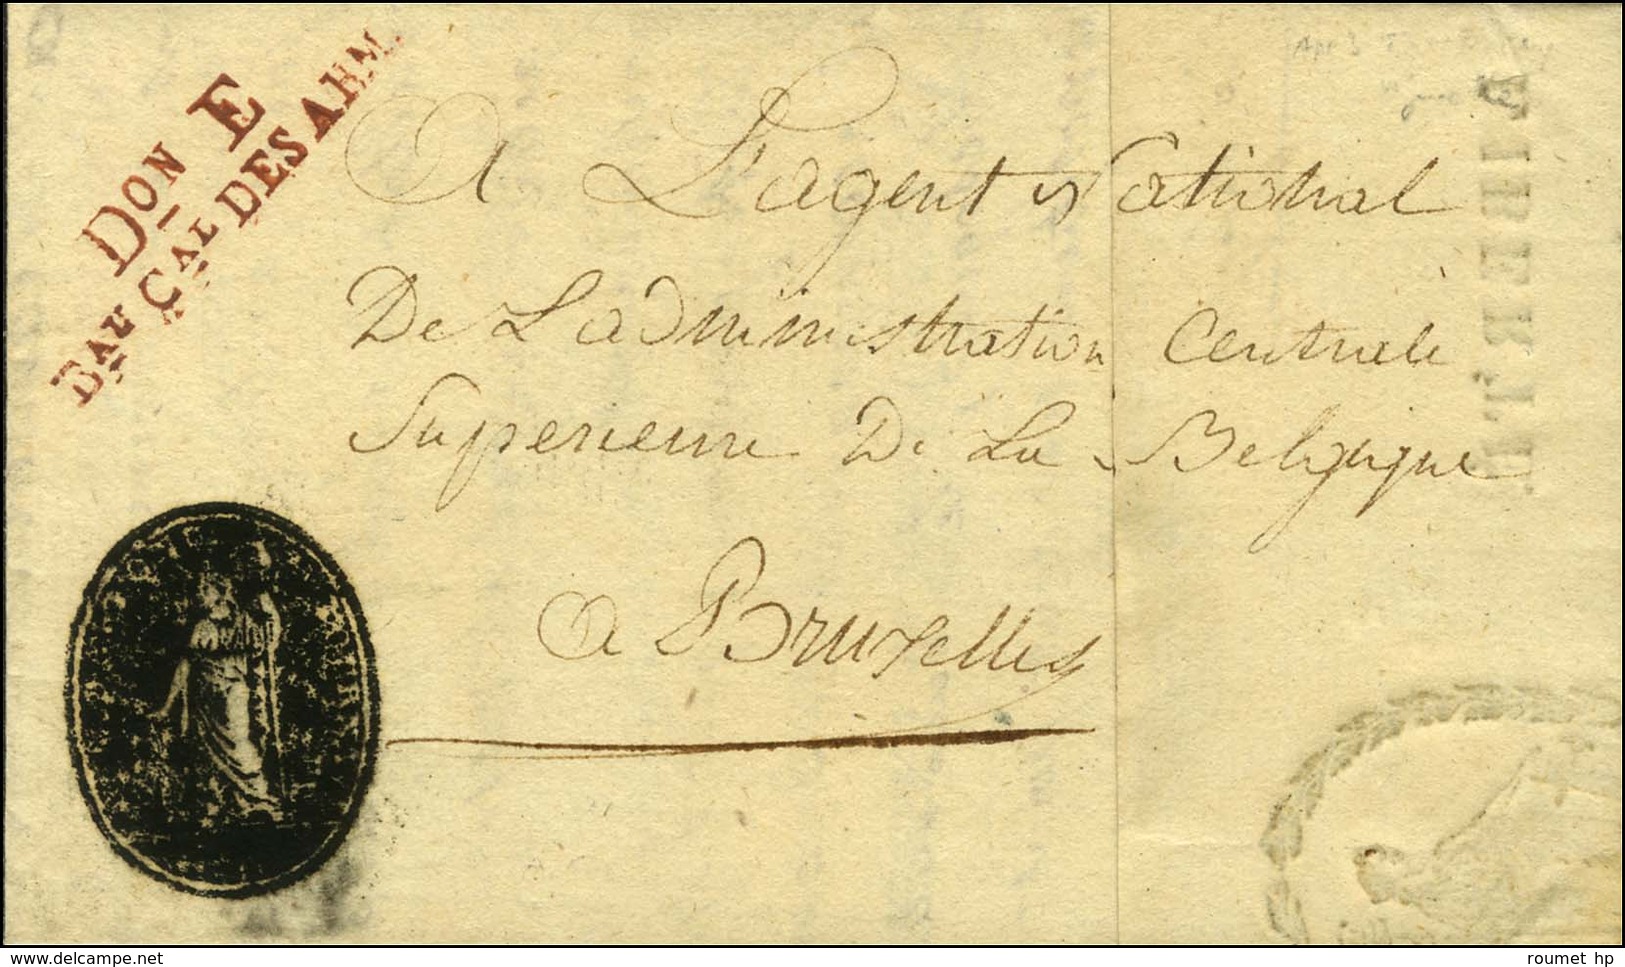 DON E
BAU CAL DES ARM.
A L'agent National
De L'administration Centrale
Superieure De La Belgique
a Bruxelles
delcampe.net
roumet hp